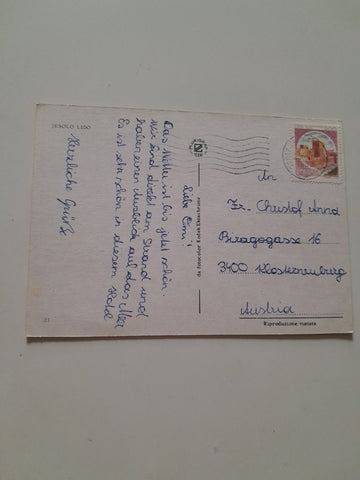 JESOLO LIDO
Liebe Omi!
Das Wetter ist bis jetzt schön.
Wir sind direkt am Strand und
haben einen Ausblick auf das Meer
Es ist sehr schön in diesem Hotel
Herzliche Grüße
21
An
Fr. Christof Anna
Biragogasse 16
3400 Klosterneuburg
Austria
Riproduzione vietata